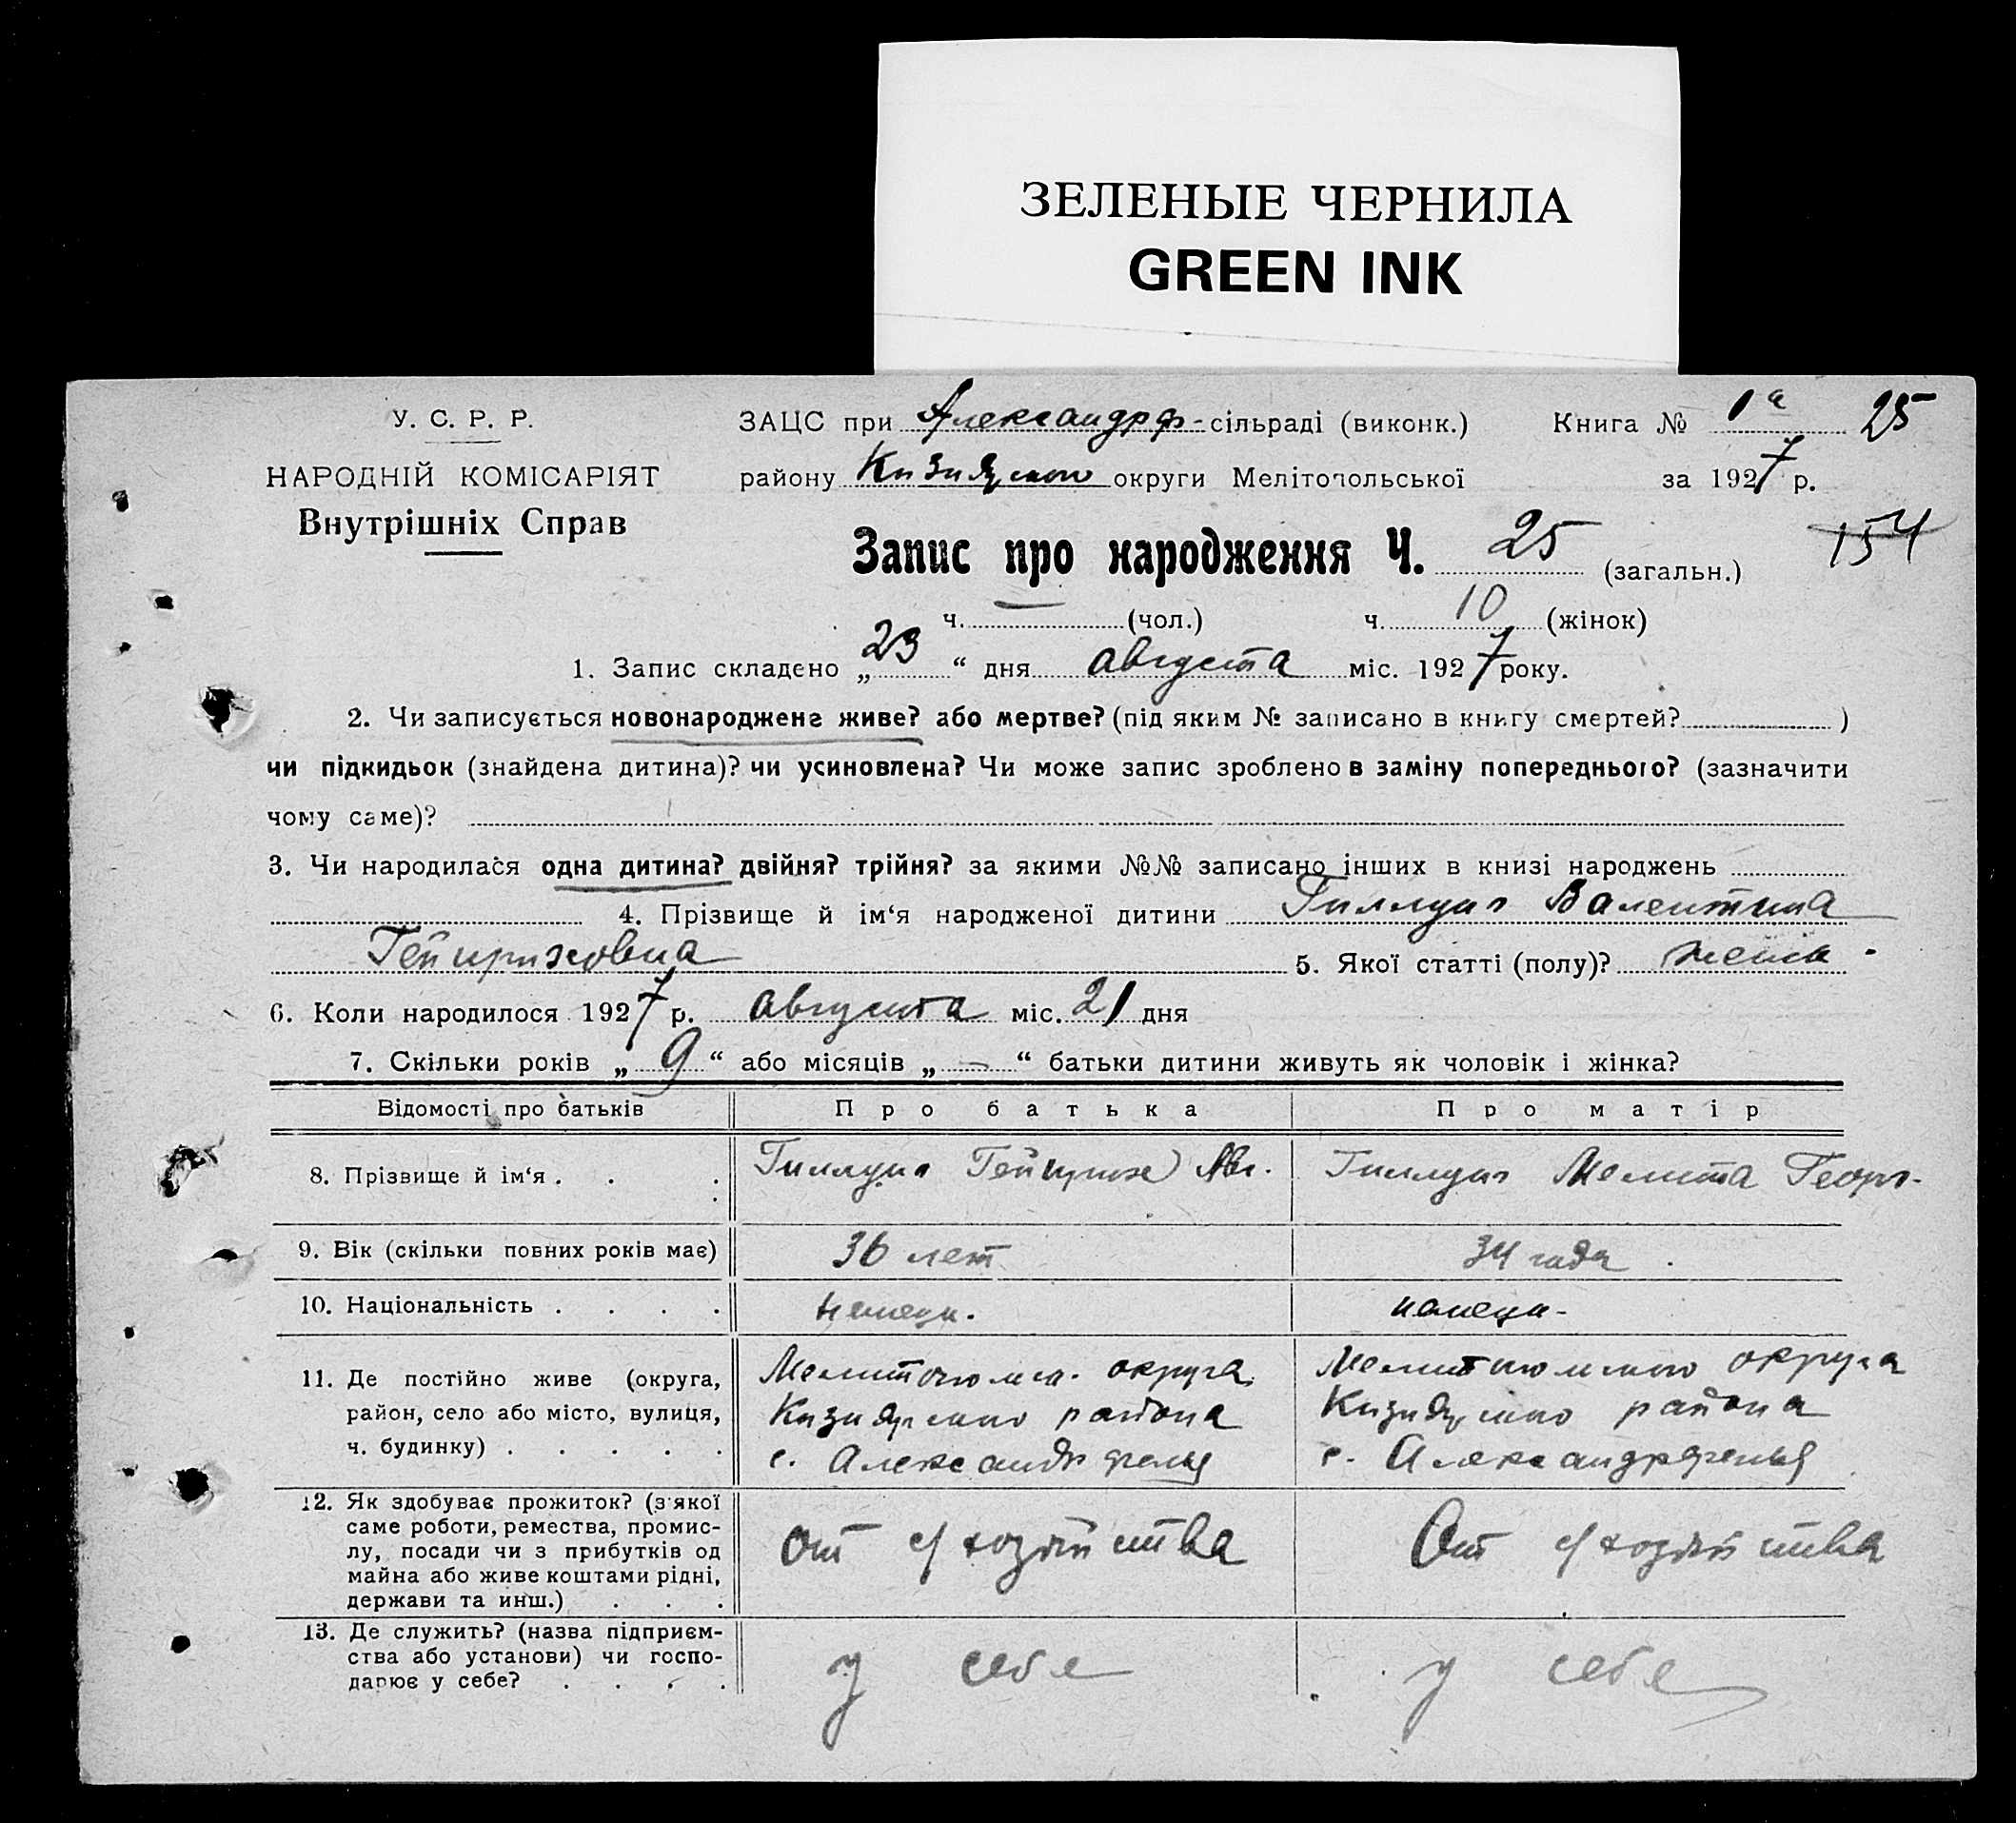 ЗЕЛЕНЫЕ ЧЕРНИЛА
GREEN INK
У. С. Р. Р.
НАРОДНІЙ КОМІСАРІЯТ
Внутрішніх Справ
ЗАЦС при Александрф- сільраді (виконк.) Книга № 1а 25
району округи Мелітопольської за 1927 р.
Запис про народження Ч. 25 (загальн.) 154
ч. — (чол.) ч. 10 (жінок)
1. Запис складено „ 23 “ дня августа міс. 1927 року.
2. Чи записується новонароджене живе? або мертве? (під яким № записано в книгу смертей? )
чи підкидьок (знайдена дитина)? чи усиновлена? Чи може запис зроблено в заміну попереднього? (зазначити
чому саме)?
3. Чи народилася одна дитина? двійня? трійня? за якими №№ записано інших в книзі народжень
4. Прізвище й ім‘я народженої дитини Валентина
Гейнриховна 5. Якої статті (полу)?
6. Коли народилося 1927 р. августа міс. 21 дня
7. Скільки років „ 9 “ або місяців „ — “ батьки дитини живуть як чоловік і жінка?
Відомості про батьків Про батька Про матір
8. Прізвище й ім‘я . . . Гейнрих Авг. Мелита Георг.
9. Вік (скільки повних років має) 36 лет 34 года
10. Національність . . . . немецк. немецк-
11. Де постійно живе (округа, район, село або місто, вулиця, ч. будинку) . . . . .
округа
района
с. Александрфельд
округа
района
с. Александрфельд
12. Як здобуває прожиток? (з якої
саме роботи, ремества, промис-
лу, посади чи з прибутків од
майна або живе коштами рідні,
держави та инш.) . . .
От с/хозяйства От с/хозяйства
13. Де служить? (назва підприєм-
ства або установи) чи госпо-
дарює у себе? . . . .
у себе у себе